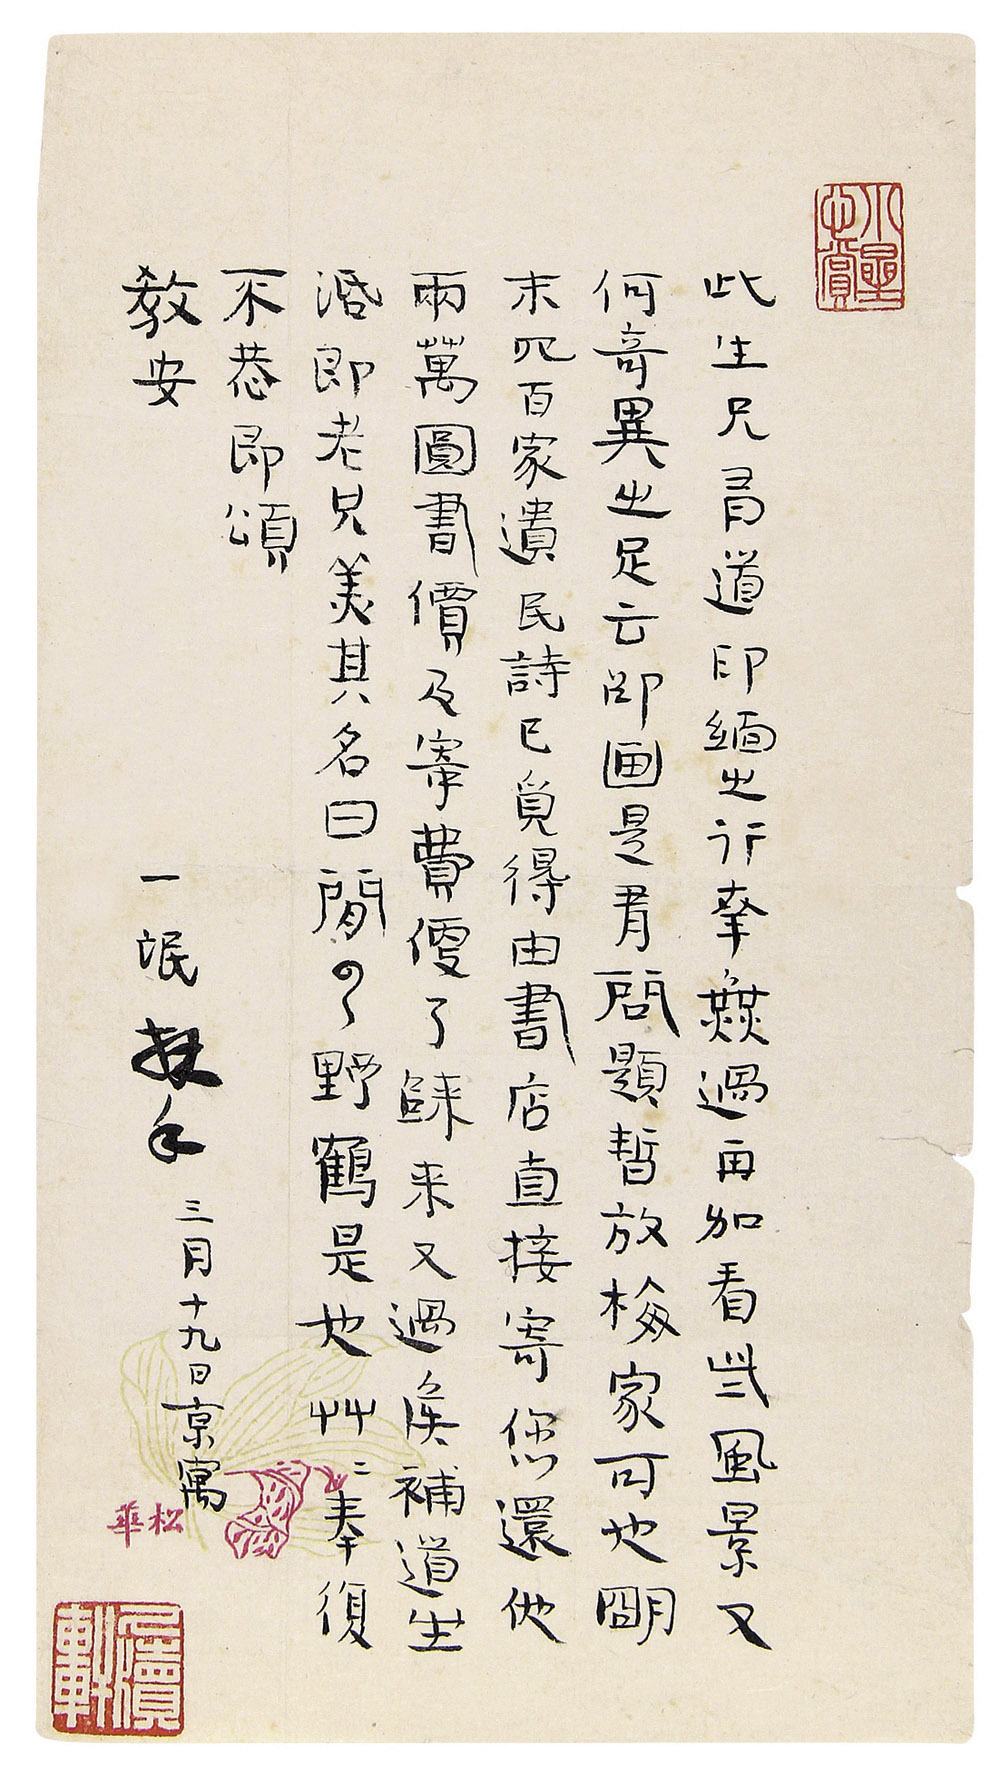 此生兄有道印緬之行幸無過再加看些風景又
何奇異之足云卻畫是有問題暫放梅家可也明
末四百家遺民詩已覓得由書店直接寄您還他
兩萬圓書價及寄費便了歸來又過矦補道生
湣即老兄美其名曰閒雲野鶴是也艸〻奉復
不恭即頌
教安
一氓 拜手
三月十九日京寓
松華